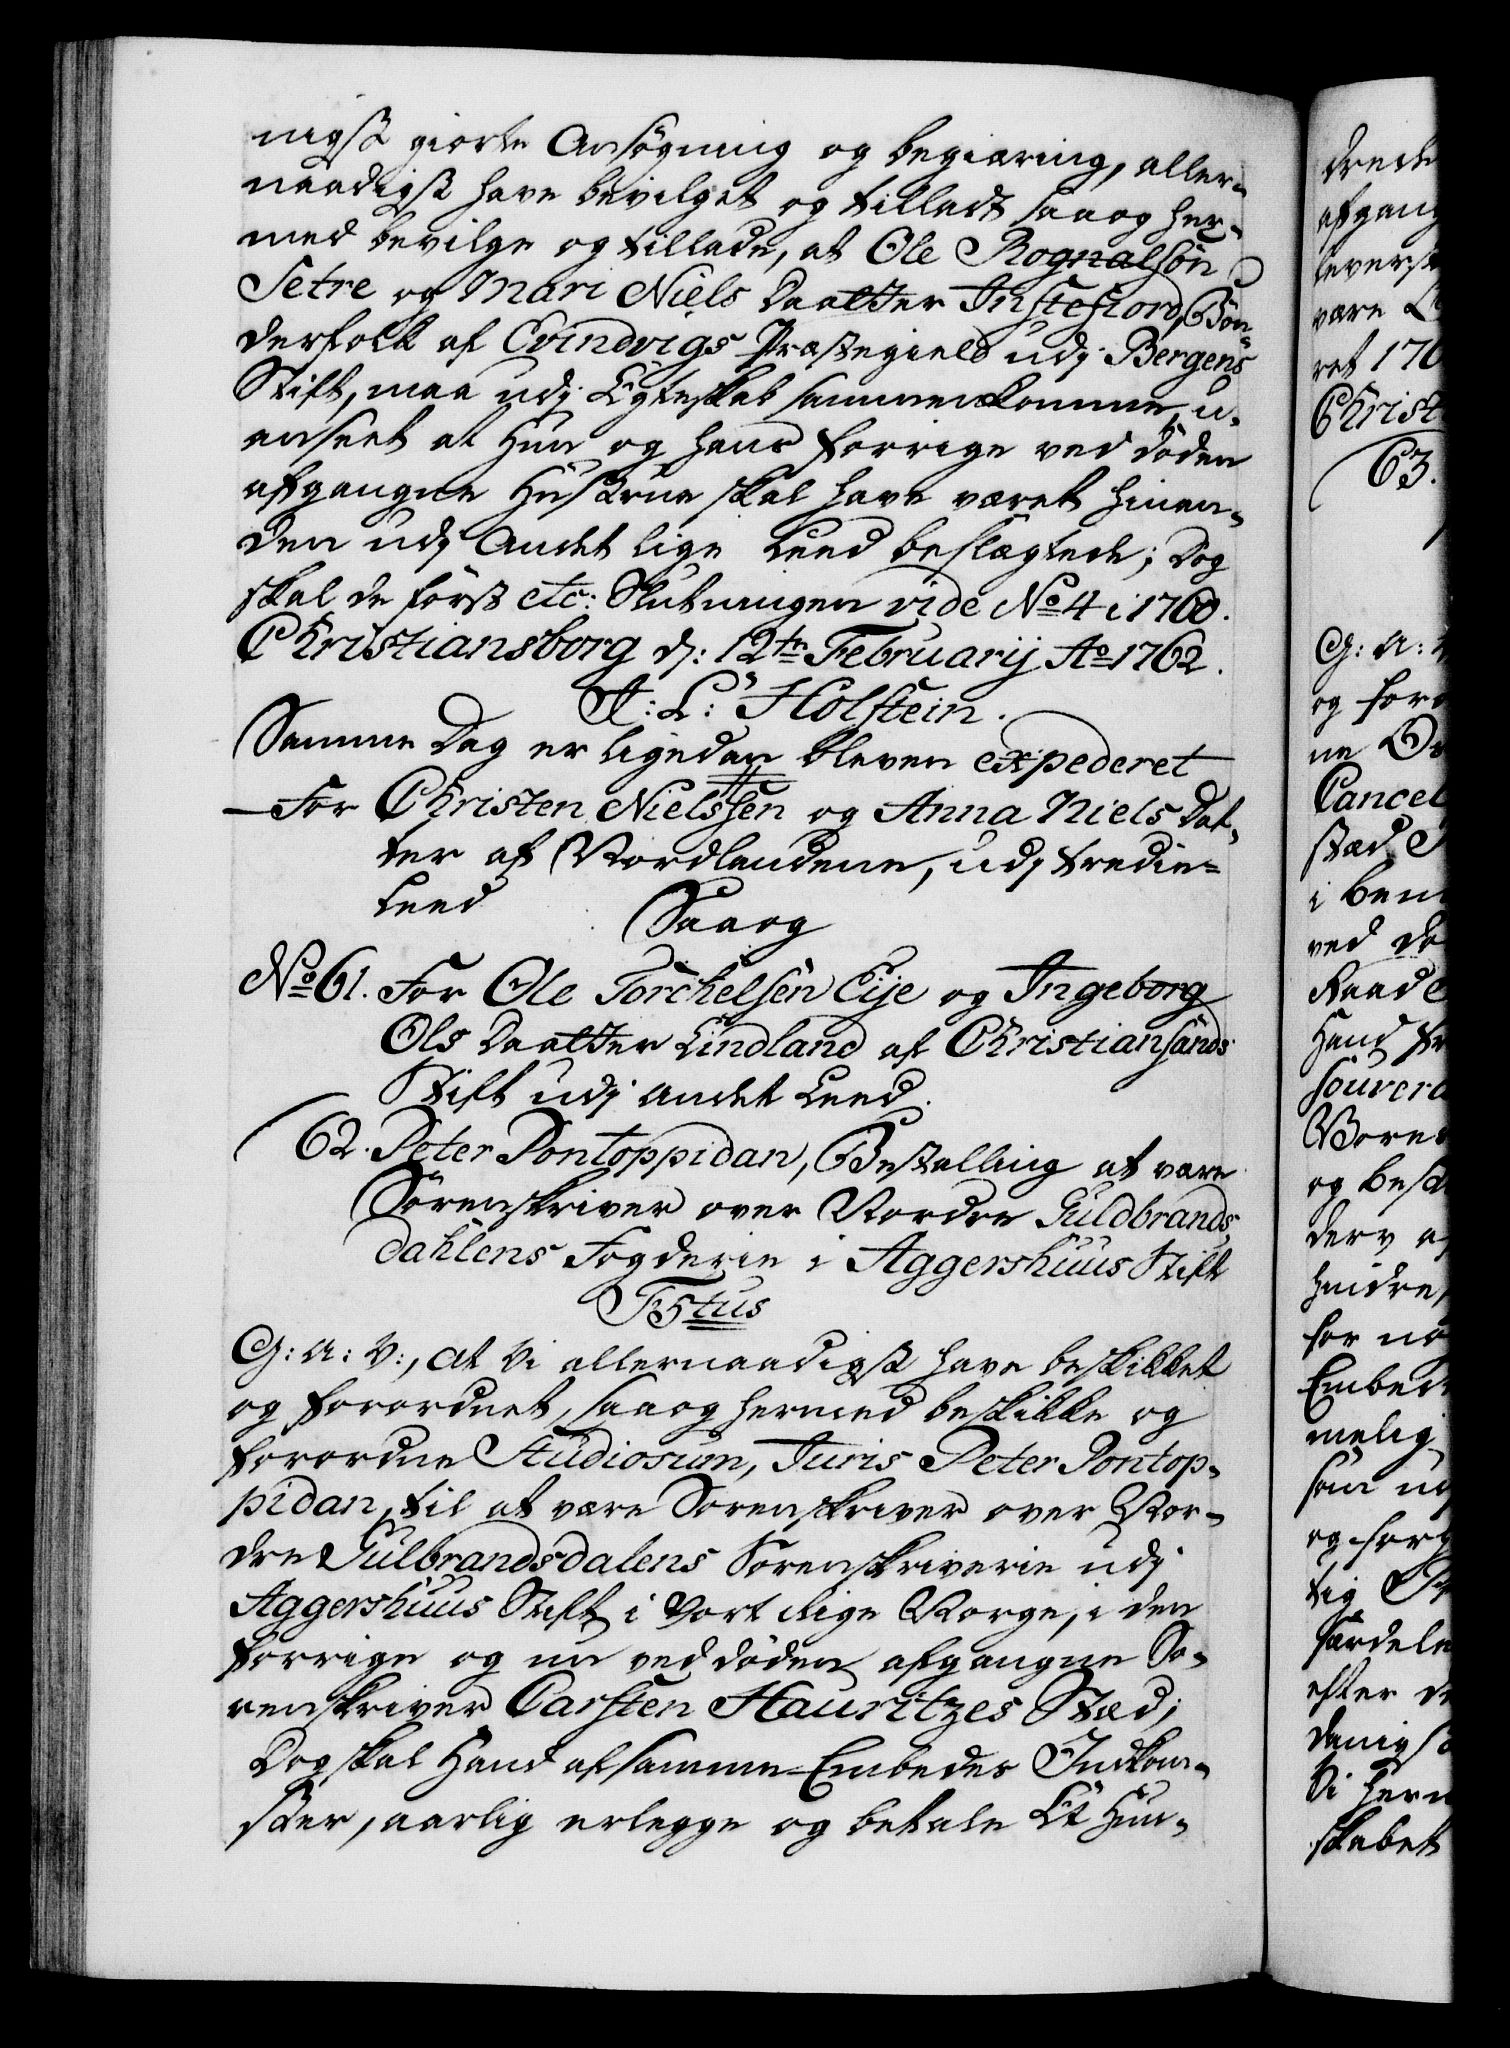 nigst giorte Ansøgning og begiæring, aller-
naadigst have bevilget og tilladt saa og her-
med bevilge og tillade, at Ole Rognalsön
Setre og Mari Niels Daatter Instefiord, Bön-
derfolk af Evindvigs Præstegield udj Bergens
Stift, maa udj Egteskab sammenkomme, u-
anseet at Hun og hans forrige ved døden
afgangne Hustrue skal have været hinan-
den udj Andet lige Leed beslægtede; Dog
skal de först etc: Slutningen vide No 4 i 1760.
Christiansborg d: 12te Februarij Ao 1762.
J: L: Holstein.
Samme Dag er ligedan bleven expederet
For Christen Nielssen og Anna Niels Dat-
ter af Nordlandene, udj tredie
Leed
Saaog
No 61. For Ole Torchelsen Eije og Ingeborg
Ols Daatter Lindland af Christiansands
Stift udj andet Leed.
62. Peter Pontoppidan, Bestalling at være
Sörenskriver over Nordre Guldbrands
dahlens Fogderie i Aggershuus Stift
F5tus
G: A: V:, at Vi allernaadigst have beskikket
og forordnet, saaog hermed beskikke og
forordne Studiosum Juris Peter Pontop-
pidan, til at være Sorenskriver over Nor-
dre Gulbrandsdalens Sorenskriverie udj
Aggershuus Stift i Vort Rige Norge, i den
forrige og nu ved döden afgangne So-
renskriver Carsten Hauritzes Stæd;
Dog skal Hand af samme Embedes Indkom-
ster, aarlig erlegge og betale Et Hun-
drede
afgang
63.
G: A:
Cancel
i ben
ved de
Raad
Hand
og besk
Embed
melig
efter de
Vi her
skabet